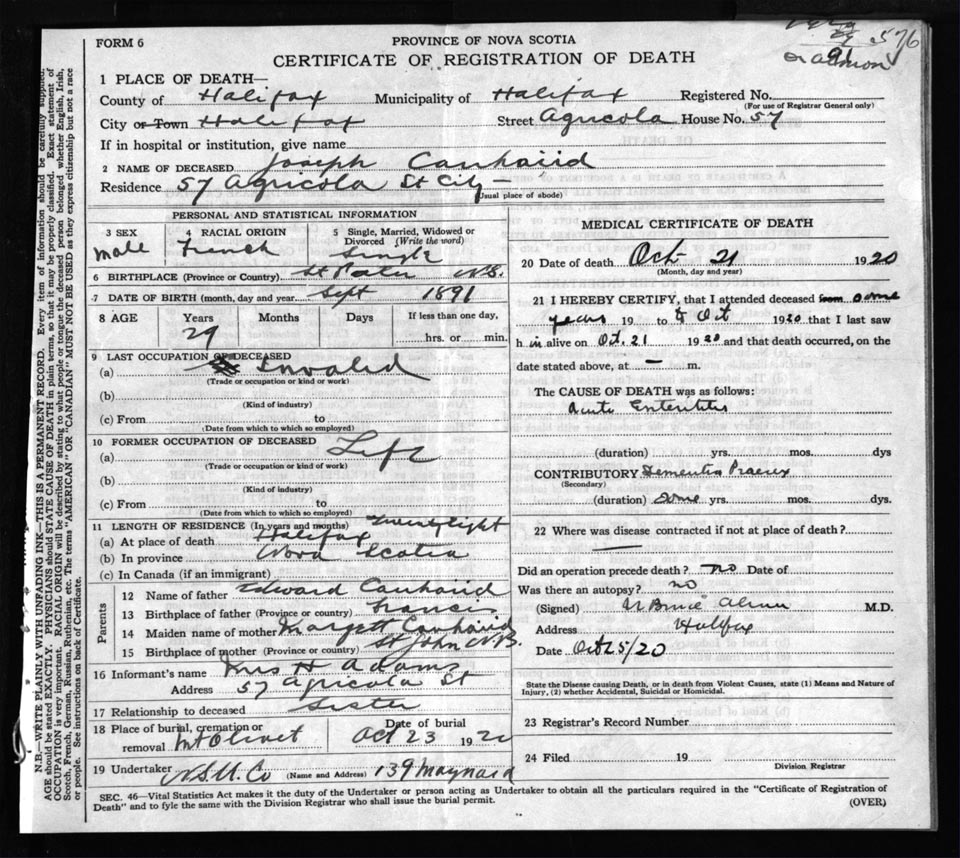 576
FORM 6
PROVINCE OF NOVA SCOTIA
CERTIFICATE OF REGISTRATION OF DEATH
1 PLACE OF DEATH—
County of Halifax Municipality of Halifax Registered No.
(For use of Registrar General only)
City or Town Halifax Street Agricola House No. 57
If in hospital or institution, give name
2 NAME OF DECEASED Joseph Canhaiid
Residence 57 Agricola St City—
(Usual place of abode)
PERSONAL AND STATISTICAL INFORMATION
3 SEX male
4 RACIAL ORIGIN French
5 Single, Married, Widowed or Divorced (Write the word) Single
6 BIRTHPLACE (Province or Country) N.S.
7 DATE OF BIRTH (month, day and year) Sept 1891
8 AGE Years 29 Months Days If less than one day, hrs. or min.
9 LAST OCCUPATION OF DECEASED
(a) Invalid
(Trade or occupation or kind or work)
(b)
(Kind of industry)
(c) From to
(Date from which to which so employed)
10 FORMER OCCUPATION OF DECEASED
(a) Life
(Trade or occupation or kind or work)
(b)
(Kind of industry)
(c) From to
(Date from which to which so employed)
11 LENGTH OF RESIDENCE (In years and months)
(a) At place of death Halifax
(b) In province Nova Scotia
(c) In Canada (if an immigrant)
Parents
12 Name of father Edward Canhaiid
13 Birthplace of father (Province or country) Francis
14 Maiden name of mother Margett Canhaiid
15 Birthplace of mother (Province or country) St John N.B.
16 Informant's name Mrs H Adams
Address 57 Agricola St
17 Relationship to deceased Sister
18 Place of burial, cremation or removal Mt Olivet
Date of burial Oct 23 1920
19 Undertaker N.S.U. Co (Name and Address) 139 Maynard
MEDICAL CERTIFICATE OF DEATH
20 Date of death Oct 21 1920
(Month, day and year)
21 I HEREBY CERTIFY, that I attended deceased from some
years 19 to Oct 1920 that I last saw
him alive on Oct. 21 1920 and that death occurred, on the
date stated above, at — m.
The CAUSE OF DEATH was as follows:
Acute Enteritis
(duration) yrs. mos. dys
CONTRIBUTORY Dementia Praecox
(Secondary)
(duration) some yrs. mos. dys.
22 Where was disease contracted if not at place of death?
Did an operation precede death? No Date of
Was there an autopsy? no
(Signed) M.D.
Address Halifax
Date Oct 25/20
State the Disease causing Death, or in death from Violent Causes, state (1) Means and Nature of
Injury, (2) whether Accidental, Suicidal or Homicidal.
23 Registrar's Record Number
24 Filed 19
Division Registrar
SEC. 46—Vital Statistics Act makes it the duty of the Undertaker or person acting as Undertaker to obtain all the particulars required in the "Certificate of Registration of
Death" and to fyle the same with the Division Registrar who shall issue the burial permit.
(OVER)
N.B.—WRITE PLAINLY WITH UNFADING INK—THIS IS A PERMANENT RECORD. Every item of information should be carefully supplied.
AGE should be stated EXACTLY. PHYSICIANS should STATE CAUSE OF DEATH in plain terms, so that it may be properly classified. Exact statement of
OCCUPATION is very important. RACIAL ORIGIN will be described by stating to what people or tongue the deceased person belonged whether English, Irish,
Scotch, French, German, Russian, Ruthenian, etc. The terms "AMERICAN" OR "CANADIAN" MUST NOT BE USED as they express citizenship but not a race
or people. See instructions on back of Certificate.